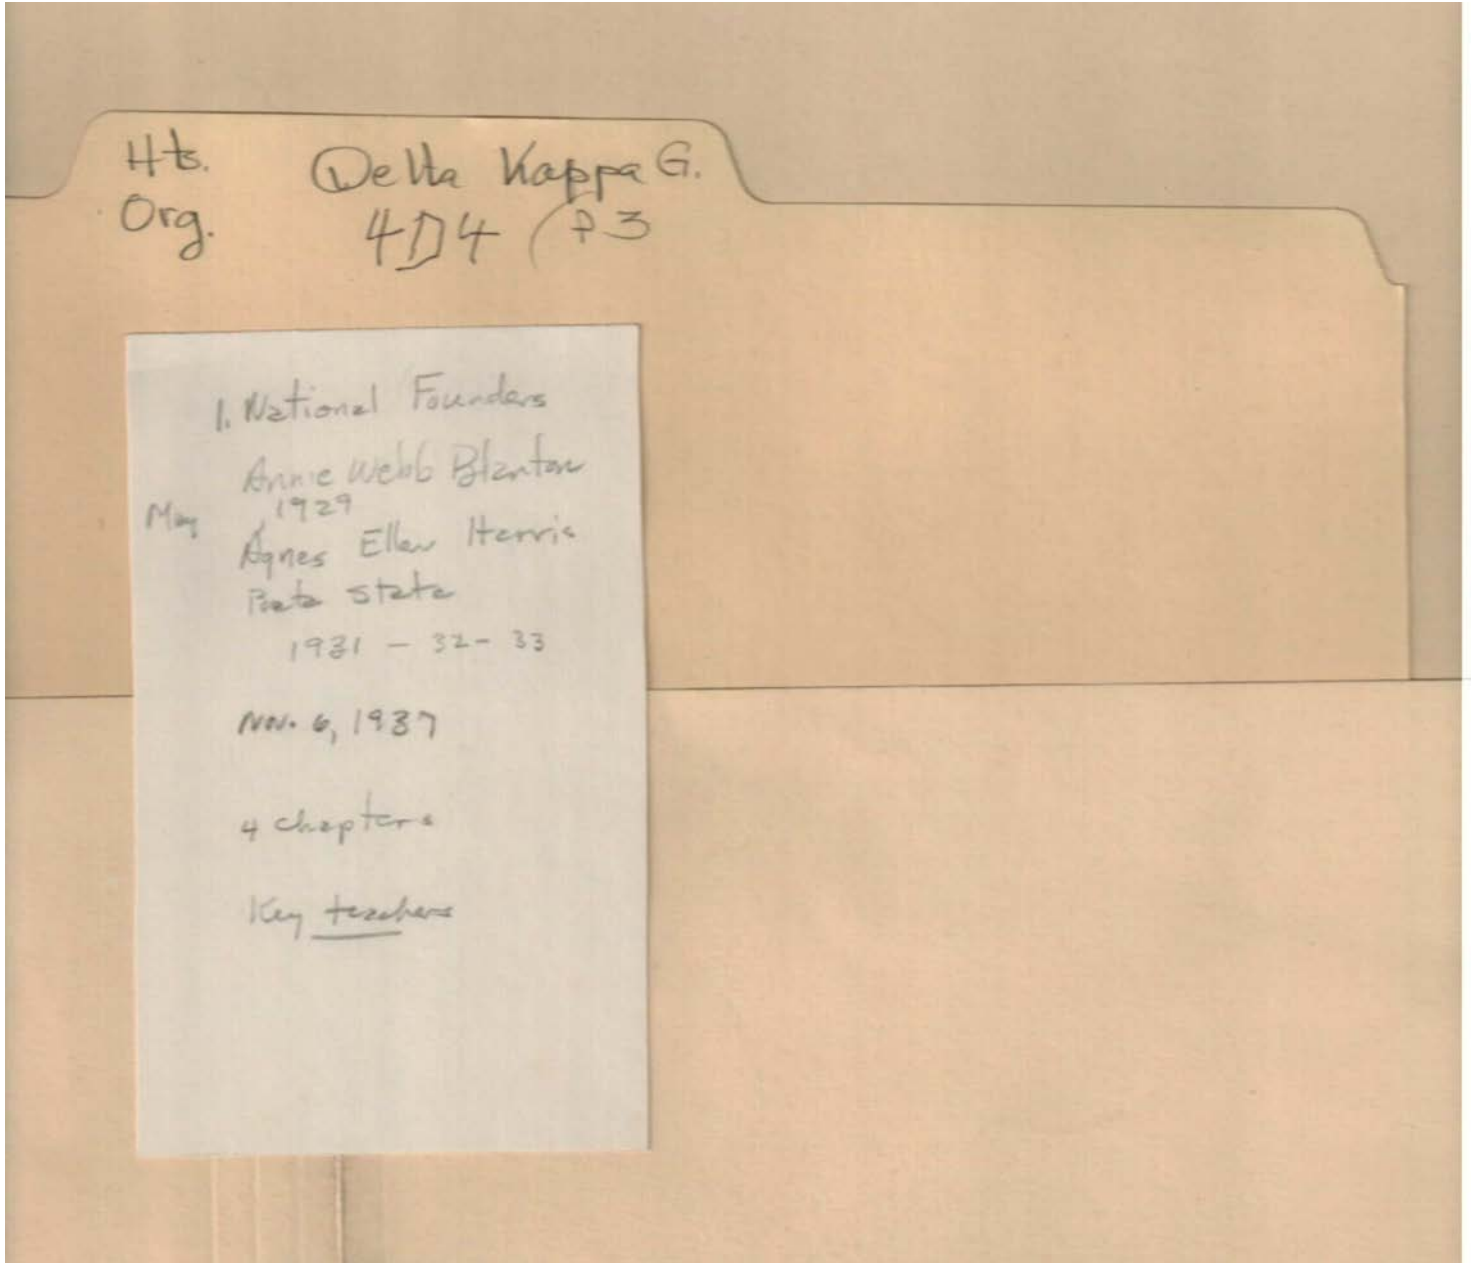 Hts. Delta Kappa G.
Org. 4D4 (P3
1. National Founders
Annie Webb Blanton
May 1929
Agnes Ellen Harris
State
1931 - 32 - 33
Nov. 6, 1937
4 Chapters
Key teachers